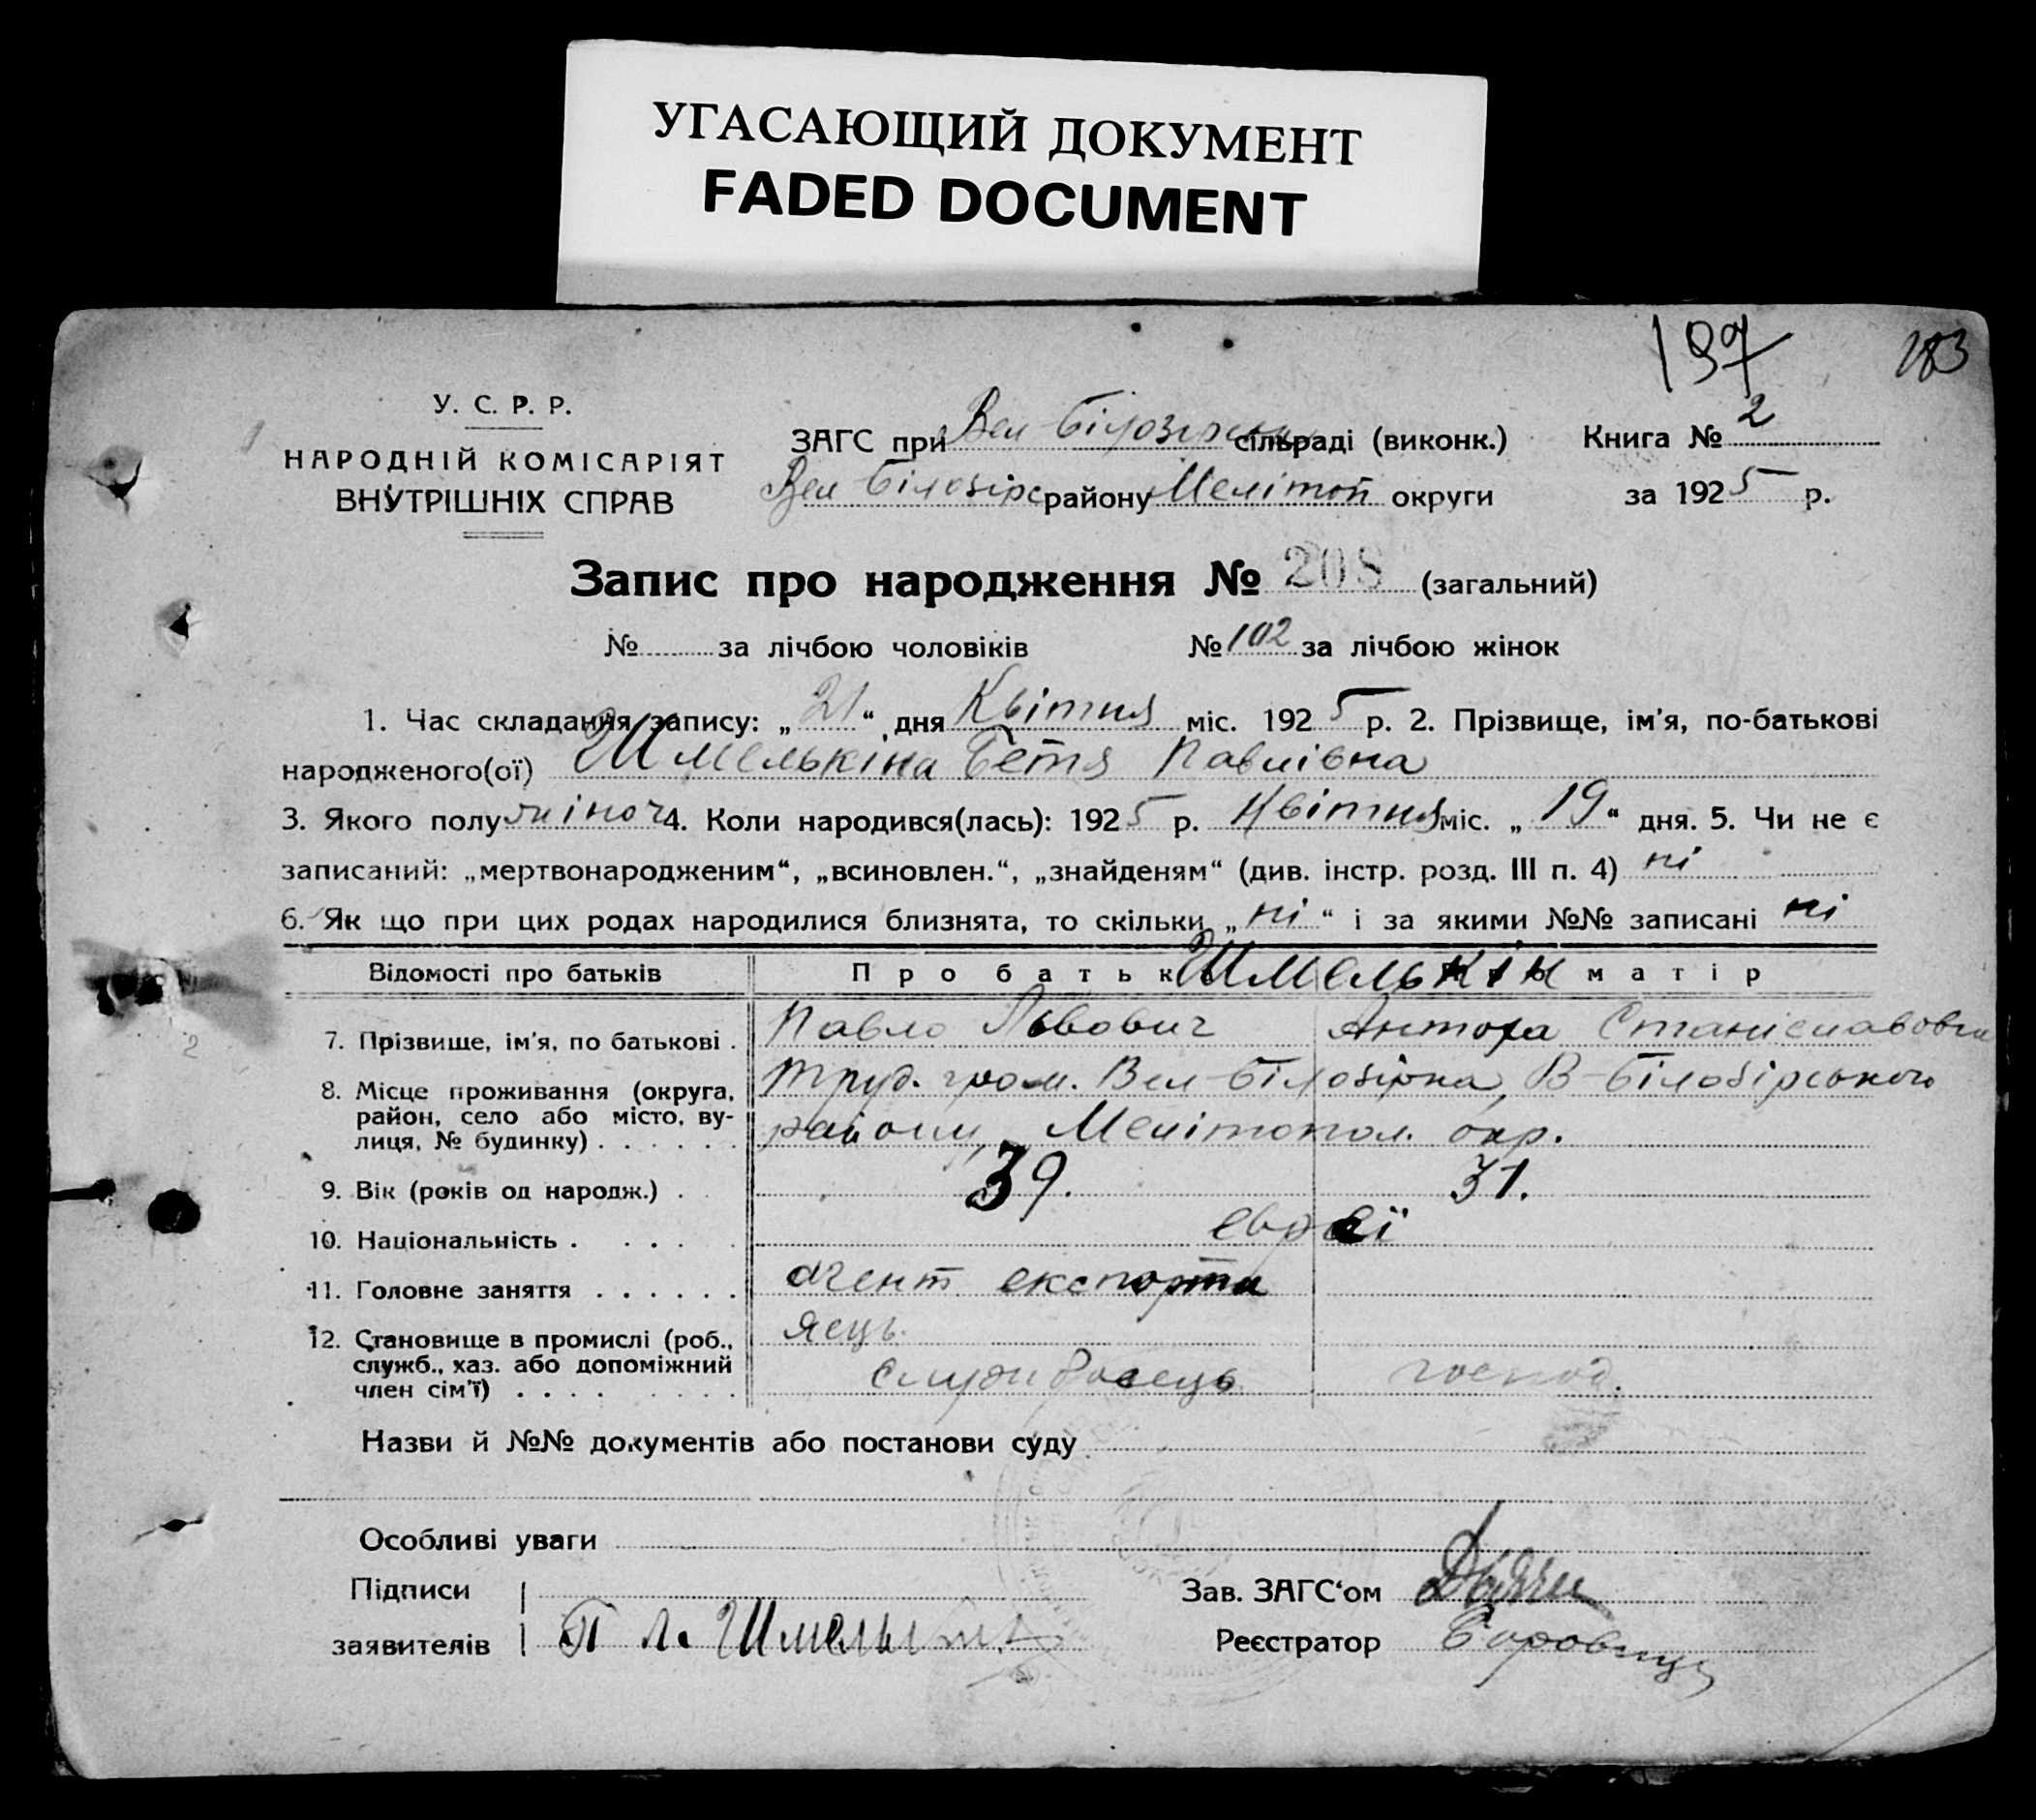 УГАСАЮЩИЙ ДОКУМЕНТ
FADED DOCUMENT
197 183
У. С. Р. Р.
НАРОДНІЙ КОМІСАРІЯТ
ВНУТРІШНІХ СПРАВ
ЗАГС при Вел Білозірськ сільраді (виконк.) Книга № 2
Вел Білозірс району Мелітоп округи за 1925 р.
Запис про народження № 208 (загальний)
№ за лічбою чоловіків № 102 за лічбою жінок
1. Час складання запису: „21“ дня Квітня міс. 1925 р. 2. Прізвище, ім'я, по-батькові
народженого(ої) Шмелькіна Бетя Павлівна
3. Якого полу жіноч 4. Коли народився(лась): 1925 р. Квітня міс. „19“ дня. 5. Чи не є
записаний: „мертвонародженим“, „всиновлен.“, „знайденям“ (див. інстр. розд. III п. 4) ні
6. Як що при цих родах народилися близнята, то скільки „ні“ і за якими №№ записані ні
Відомості про батьків Про батьк Шмелькін матір
7. Прізвище, ім'я, по батькові . Павло Львович Станіславовна
8. Місце проживання (округа, район, село або місто, вулиця, № будинку) . . . . . . труд. гром. Вел-Білозірка, В-Білозірського
району, Мелітопол. окр.
9. Вік (років од народж.) . 39. 31.
10. Національність . . . . євреї
11. Головне заняття . . . . . . агент експорта
яєць
12. Становище в промислі (роб., служб., хаз. або допоміжний член сім'ї) . . . . службовець господ.
Назви й №№ документів або постанови суду
Особливі уваги
Підписи
заявителів П Л. Зав. ЗАГС'ом
Реєстратор